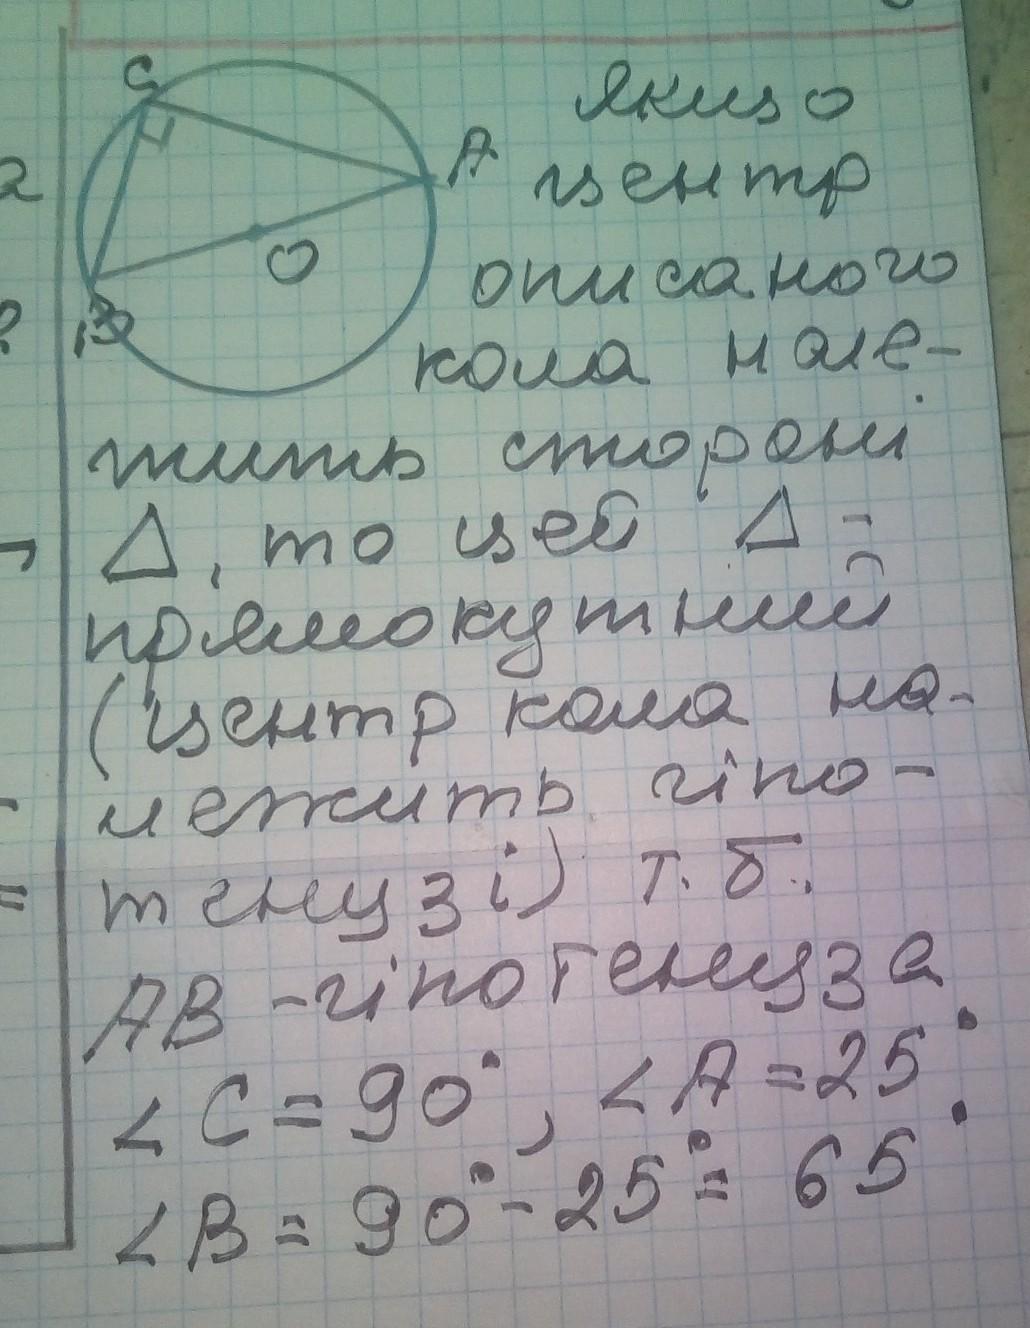 C
A
O
B
Якщо
центр
описаного
кола нале-
жить стороні
Δ, то цей Δ -
прямокутний
(центр кола на-
лежить гіпо-
тенузі) т.б.
AB - гіпотенуза
∠C = 90°, ∠A = 25°
∠B = 90° - 25° = 65°